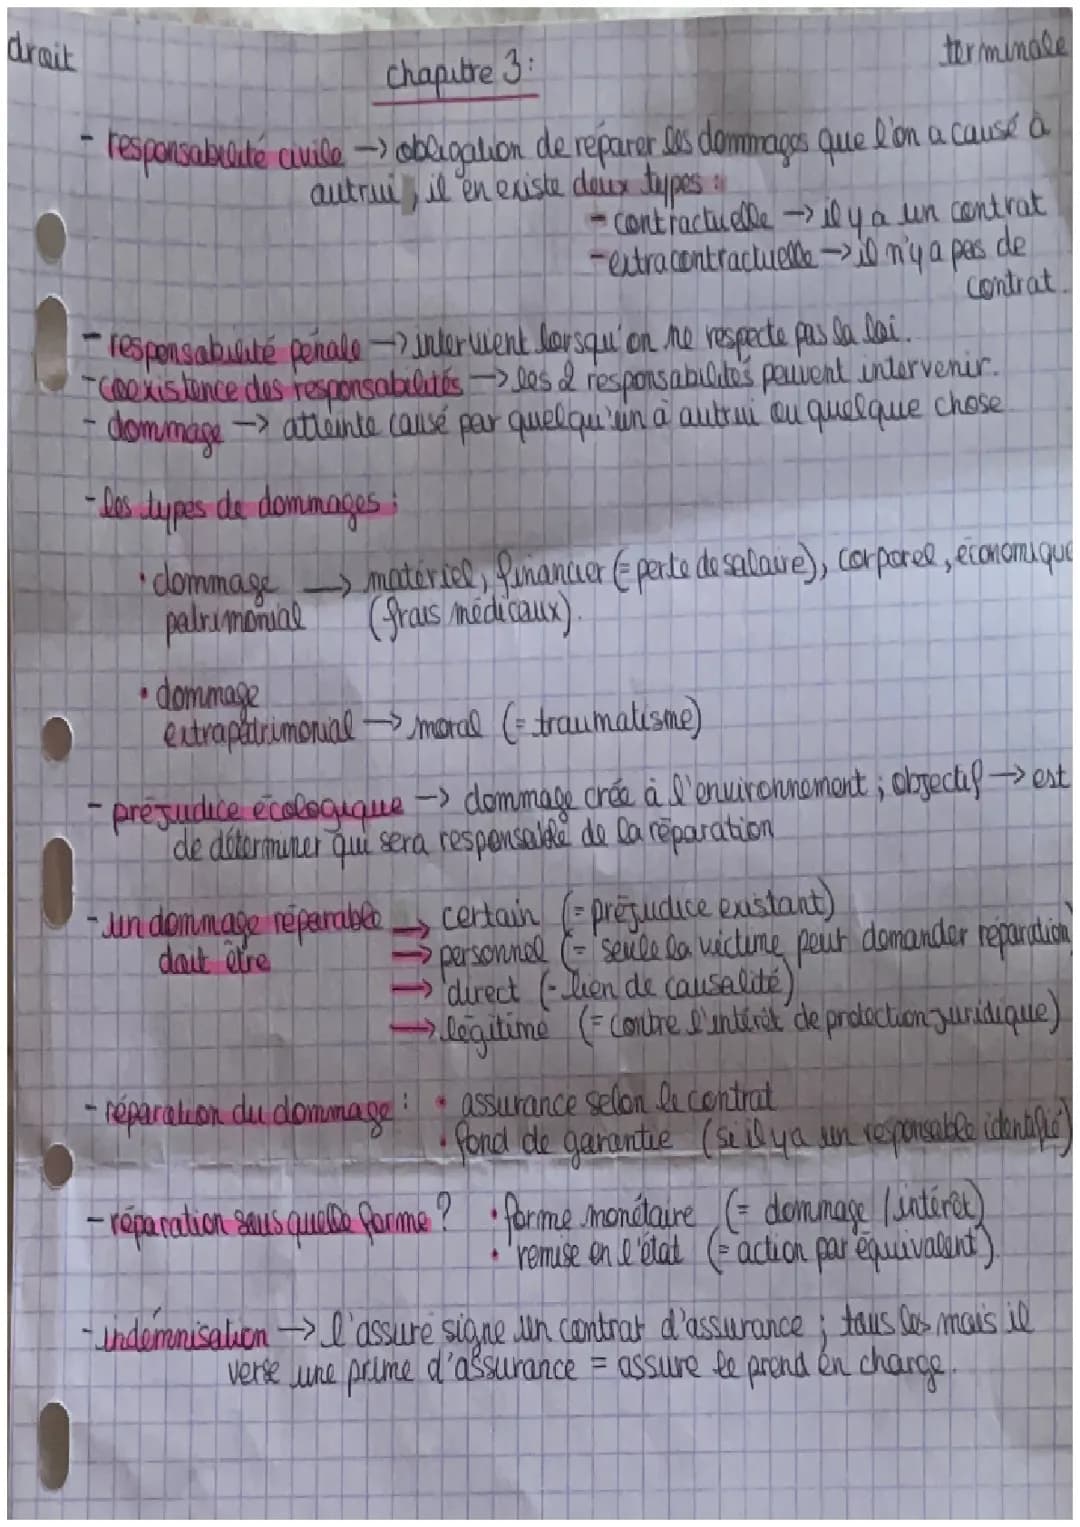 droit
terminale
chapitre 3 :
- responsabilité civile → obligation de réparer les dommages que l'on a causé à
autrui, il en existe deux types :
- contractuelle → il y a un contrat
- extracontractuelle → il n'y a pas de
contrat.
- responsabilité pénale → intervient lorsqu'on ne respecte pas la loi.
- coexistence des responsabilités → les 2 responsabilités peuvent intervenir.
- dommage → atteinte causé par quelqu'un à autrui ou quelque chose
- les types de dommages :
• dommage → matériel, financier (= perte de salaire), corporel, économique
patrimonial (frais médicaux).
• dommage
extrapatrimonial → moral (= traumatisme)
- préjudice écologique → dommage crée à l'environnement ; objectif → est
de déterminer qui sera responsable de la réparation
- un dommage réparable → certain (= préjudice existant)
doit être → personnel (= seule la victime peut demander réparation)
→ direct (= lien de causalité)
→ légitime (= contre l'intérêt de protection juridique)
- réparation du dommage : • assurance selon le contrat
• fond de garantie (si il y a un responsable identifié)
- réparation sous quelle forme ? • forme monétaire (= dommage / intérêt)
• remise en l'état (= action par équivalent).
- indémnisation → l'assuré signe un contrat d'assurance ; tous les mois il
verse une prime d'assurance = assure le prend en charge.